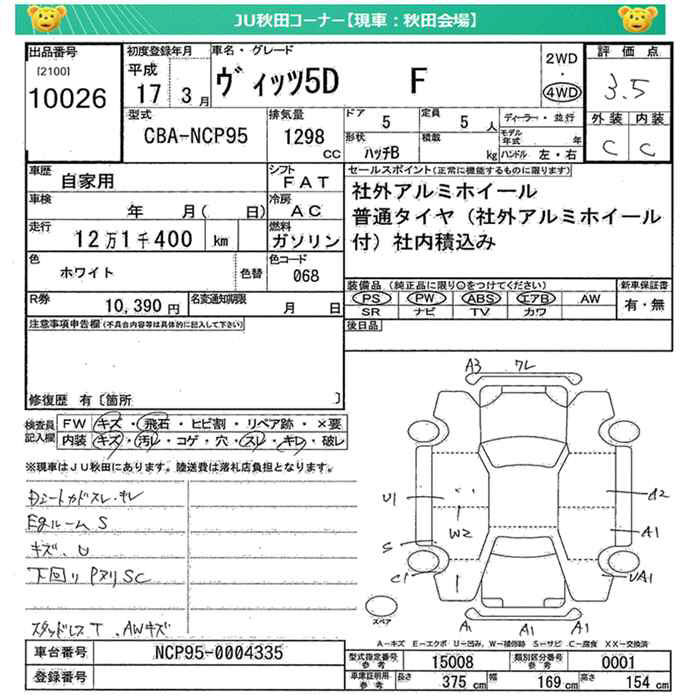 JU秋田コーナー【現車：秋田会場】
出品番号
[2100]
10026
初度登録年月
平成
17 3月
車名・グレード
ヴィッツ5D F
2WD
・
4WD
評価点
3.5
外装 内装
C C
型式
CBA-NCP95
排気量
1298
CC
ドア
5
定員
5 人
形状
ハッチB
積載
kg
ディーラー・並行
モデル年式 年
ハンドル 左・右
車歴
自家用
シフト
FAT
車検
年 月( 日)
冷房
AC
走行
12万1千400 km
燃料
ガソリン
色
ホワイト
色替
色コード
068
R券
10,390 円
名変通知期限
月 日
セールスポイント(正常に機能するものに限ります)
社外アルミホイール
普通タイヤ（社外アルミホイール
付）社内積込み
装備品（純正品に限り○をつけてください）
PS PW ABS エアB AW
SR ナビ TV カワ
新車保証書
有・無
後日品
注意事項申告欄(不具合内容等は具体的に記入して下さい)
修復歴 有〔箇所 〕
検査員
記入欄
FW キズ・飛石・ヒビ割・リペア跡・×要
内装 キズ・汚レ・コゲ・穴・スレ・キレ・破レ
※現車はJU秋田にあります。陸送費は落札店負担となります。
Dシートカドスレ・キレ
Egルーム S
キズ、U
下回り Pヌリ SC
スタッドレス T、AWキズ
A3 ワレ
U1
W2
S
C1
A2
A1
UA1
A1 A1 A1
スペア
A－キズ E－エクボ U－凹み W－補修跡 S－サビ C－腐食 XX－交換済
車台番号
NCP95-0004335
登録番号
型式指定番号
参考
15008
類別区分番号
参考
0001
車庫証明用
参考
長さ 375 cm
幅 169 cm
高さ 154 cm